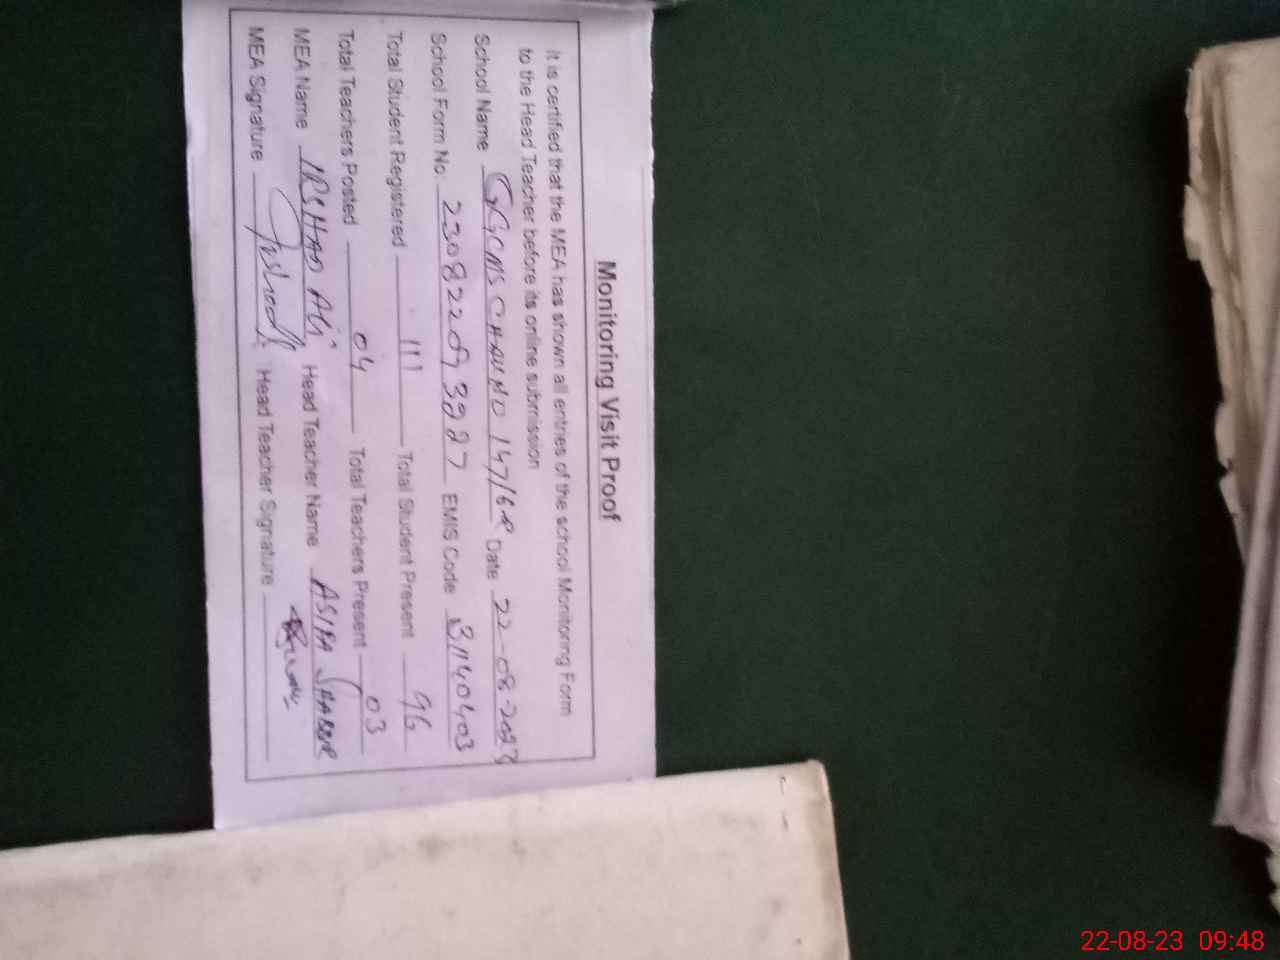 Monitoring Visit Proof
It is certified that the MEA has shown all entries of the school Monitoring Form
to the Head Teacher before its online submission
School Name GGCMS CHAK NO 147/6-R Date 22-08-2023
School Form No: 23082209 3227 EMIS Code 31140403
Total Student Registered 111 Total Student Present 96
Total Teachers Posted 04 Total Teachers Present 03
MEA Name IRSHAD Ali Head Teacher Name ASIFA SHABBIR
MEA Signature Irshad Head Teacher Signature
22-08-23 09:48